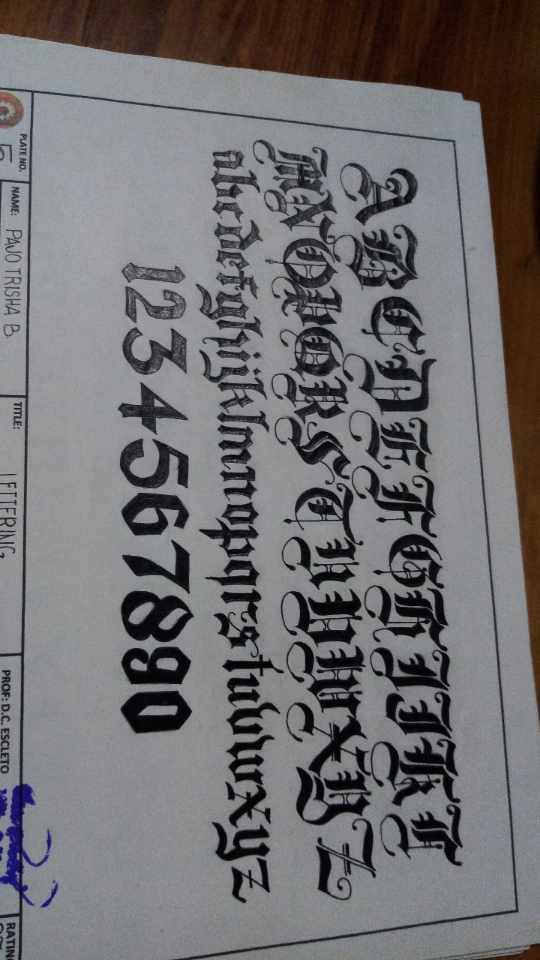 A B C D E F G H I J K L
M N O P Q R S T U V W X Y Z
abcdefghijklmnopqrstuvwxyz
1234567890
PLATE NO.
NAME: PAJO TRISHA B.
TITLE: LETTERING
PROF: D.C. ESCLETO